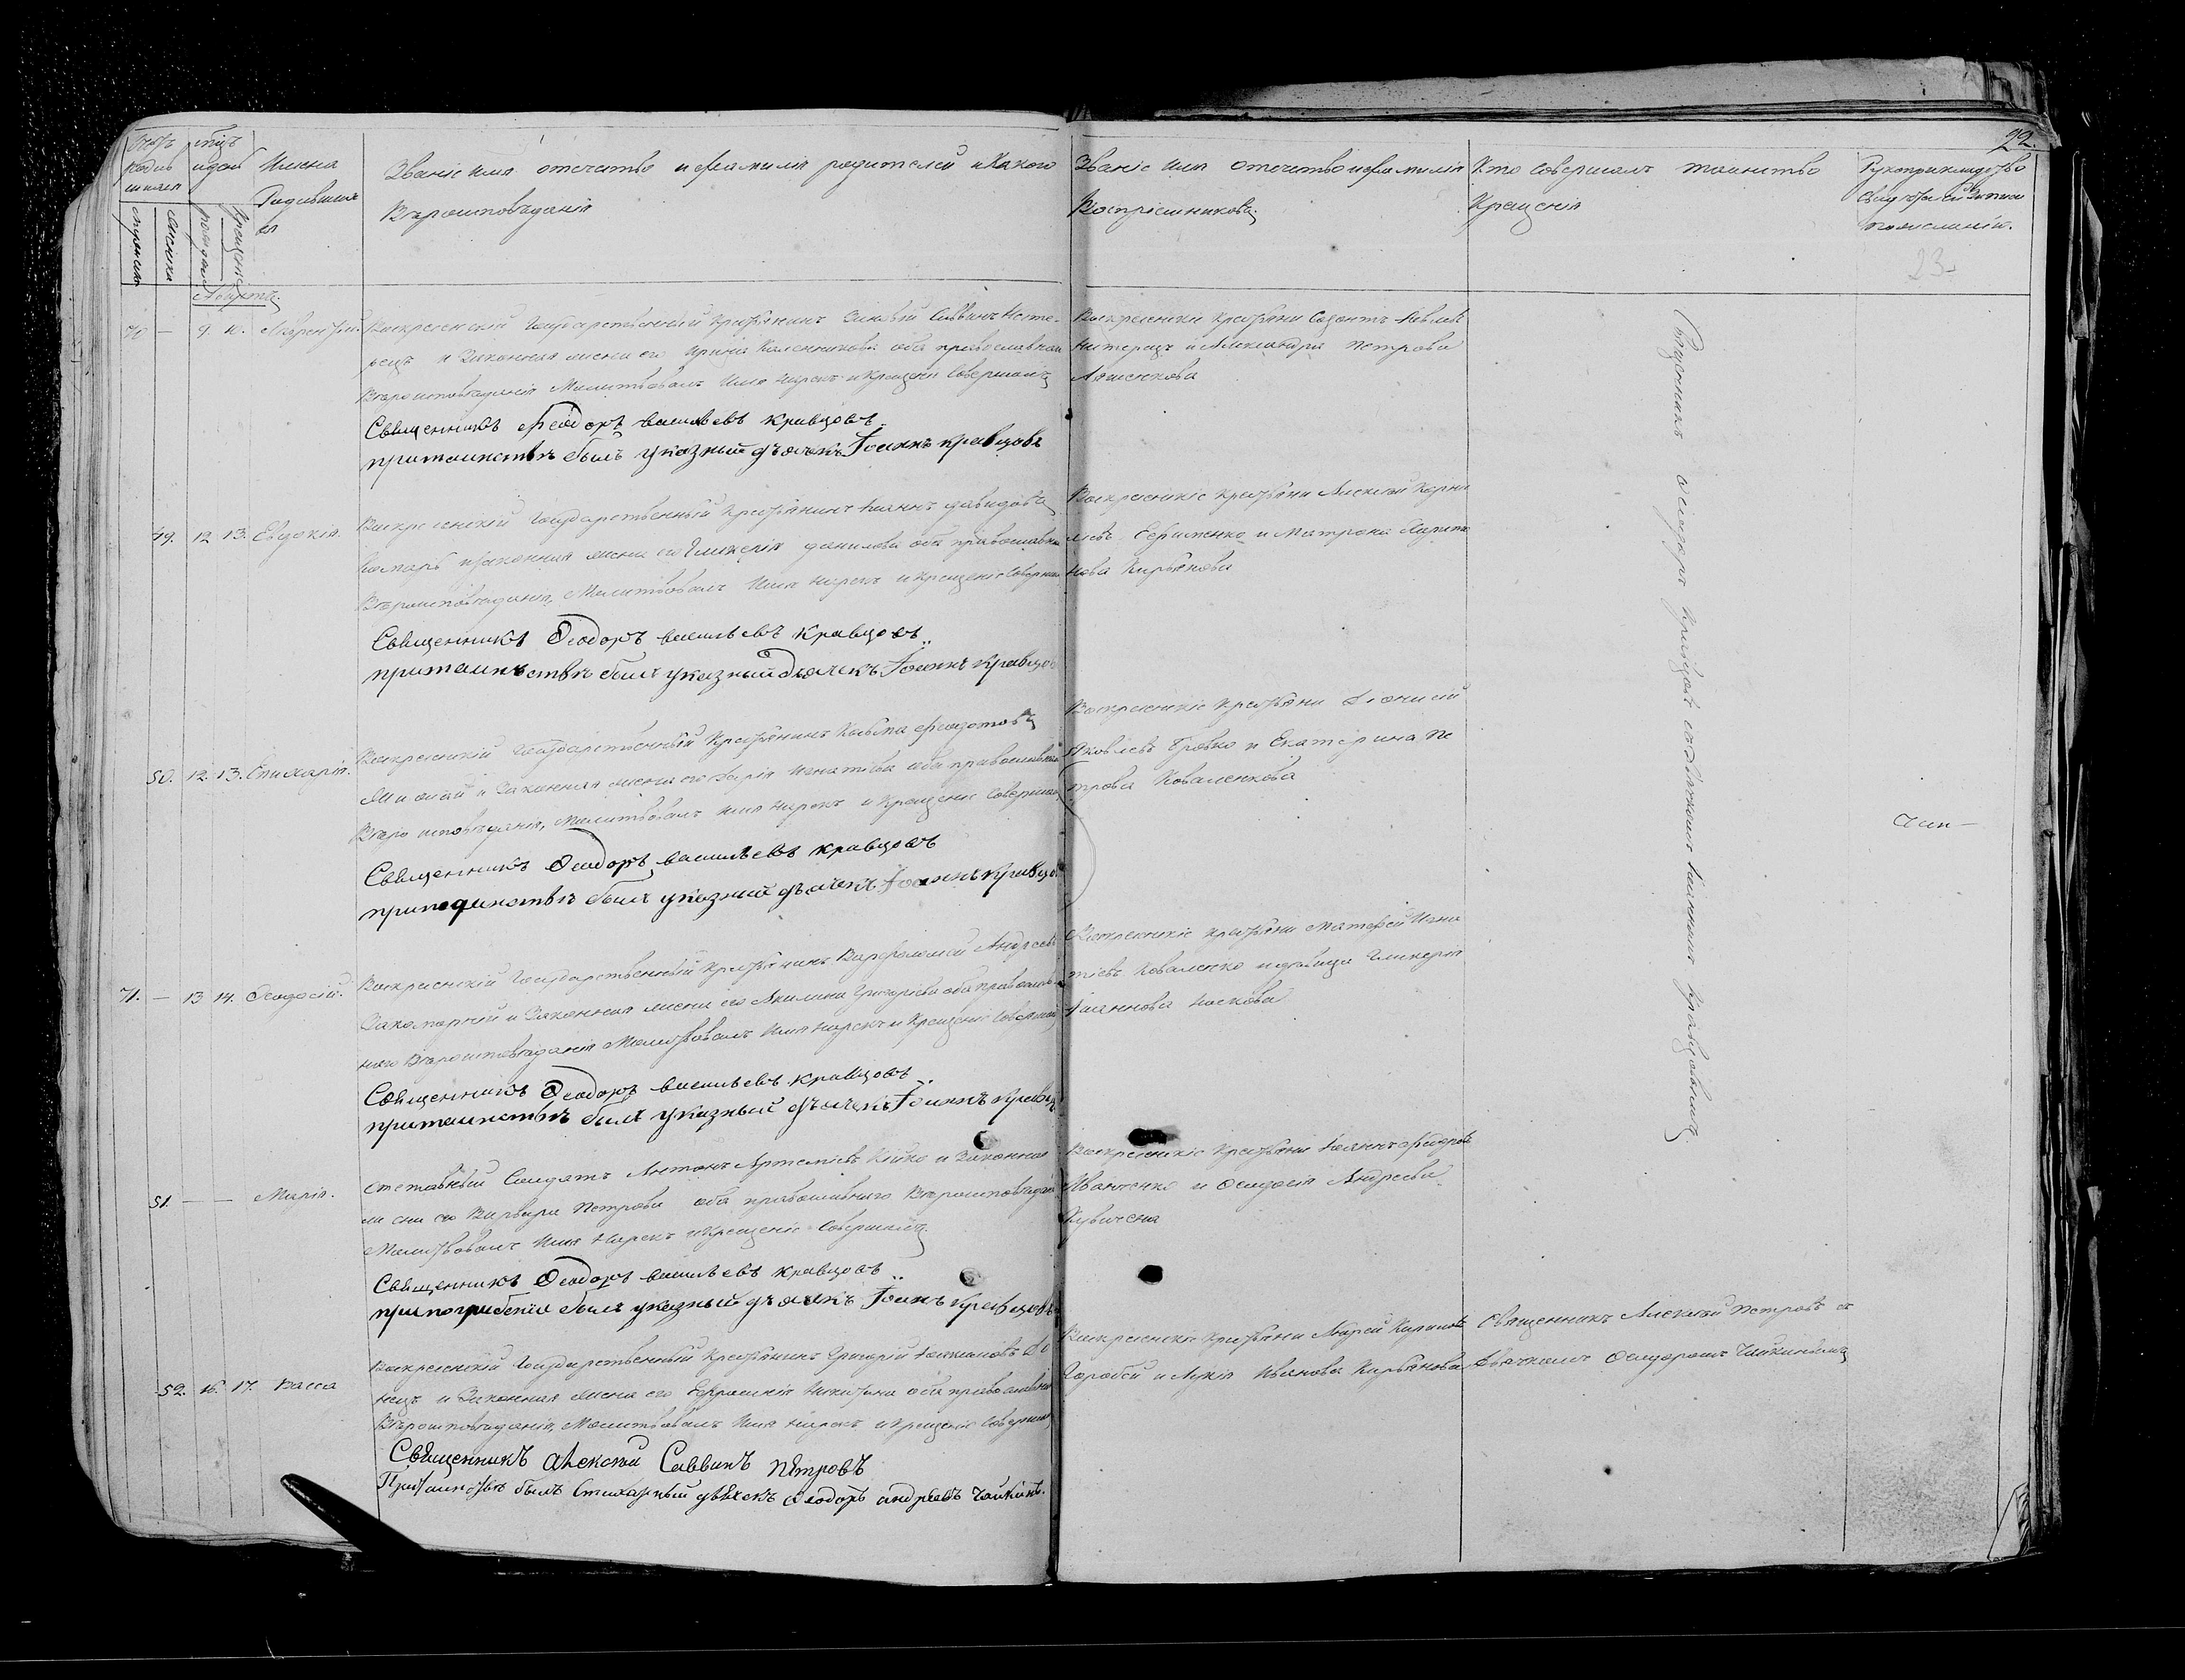 22.
Счетъ родив шихся
мѣсцъ и день
Имена Родивших ся
Званіе имя отечество и фамилія родителей и какого
Вѣроисповѣданія
Званіе имя отечество и фамилія
Воспріемниковъ
Кто совершалъ таинство
Крещенія
Рукоприкладство
свидѣтелей записи
по желанію.
23
мужеска
женска
рожденія
крещенія
Августъ
70 — 9. 10. Лаврентій.
Воскресенскій Государственный Крестьянинъ Зиновій Саввинъ Несте-
рецъ и Законная жена его Ирина Каленникова оба православнаго
Вѣроисповѣданія Молитвовалъ имя нарекъ и крещеніе совершалъ
Священникъ Феодоръ васильевъ кравцовъ
притаинствѣ былъ указный дьячекъ Іоаннъ кравцовъ
Воскресенскіе Крестьяне Созонтъ Павловъ
Нестерецъ и Александра Петрова
Ляшенкова
49. 12 13. Евдокія.
Воскресенскій Государственный Крестьянинъ Іоаннъ Давидовъ
Комаръ и законная жена его Гликерія Данилова оба православнаго
Вѣроисповѣданія, Молитвовалъ имя нарекъ и крещеніе совершалъ
Священникъ Ѳеодоръ васильевъ кравцовъ
притаинствѣ былъ указный дьячекъ Іоаннъ кравцов
Воскресенскіе крестьяне Алексѣй Корни
ліевъ Ефименко и Матрона Харито
нова Кирьянова
50. 12. 13. Епихарія.
Воскресенскій Государственный Крестьянинъ Косьма Федотовъ
и Законная жена его Дарія Игнатіева оба православнаго
Вѣроисповѣданія, Молитвовалъ имя нарекъ и крещеніе совершалъ
Священникъ Ѳеодоръ васильевъ кравцовъ
притаинствѣ былъ указный дьячекъ Іоаннъ кравцо
Воскресенскіе крестьяне Діонисій
Яковлевъ Бровко и Екатерина Пе
трова Коваленкова
71. — 13 14. Ѳеодосій.
Воскресенскій Государственный Крестьянинъ Варфоломей Андреевъ
и Законная жена его Акилина Григорьева оба православ
наго Вѣроисповѣданія Молитвовалъ имя нарекъ и крещеніе совершалъ
Священникъ Ѳеодоръ васильевъ кравцовъ
притаинствѣ былъ указный дьячекъ Іоаннъ кравц
Воскресенскіе крестьяне Матфей Игна
тіевъ Коваленко и дѣвица Гликерія
Іоаннова Носкова
51. — — Марія.
Отставный Солдатъ Антонъ Артеміевъ Бойко и Законная
жена его Варвара Петрова оба православнаго Вѣроисповѣданія
Молитвовалъ имя нарекъ и крещеніе совершалъ
Священникъ Ѳеодоръ васильевъ кравцовъ
припогребеніи былъ указный дьячекъ Іоанъ кравцовъ
Воскресенскіе крестьяне Іоаннъ Федоровъ
Иванченко и Ѳеодосія Андреева
52. 16. 17. Васса
Воскресенскій Государственный Крестьянинъ Григорій Іоакимовъ До
нецъ и Законная жена его Евфросинія Никитина оба православнаго
Вѣроисповѣданія, Молитвовалъ имя нарекъ и крещеніе совершалъ
Священникъ алексѣй Саввинъ петровъ
Притаинствѣ былъ Стихарный дьячекъ Ѳеодоръ андреевъ Чайкинъ.
Воскресенскіе крестьяне Андрей Кириловъ
Горобей и Лукія Иванова Кирьянова
Священникъ Алексѣй Петровъ съ
Дьячкомъ Ѳеодоромъ Чайкинымъ
Священникъ Ѳеодоръ Кравцовъ съ дьячкомъ Іоанномъ Кравцовымъ